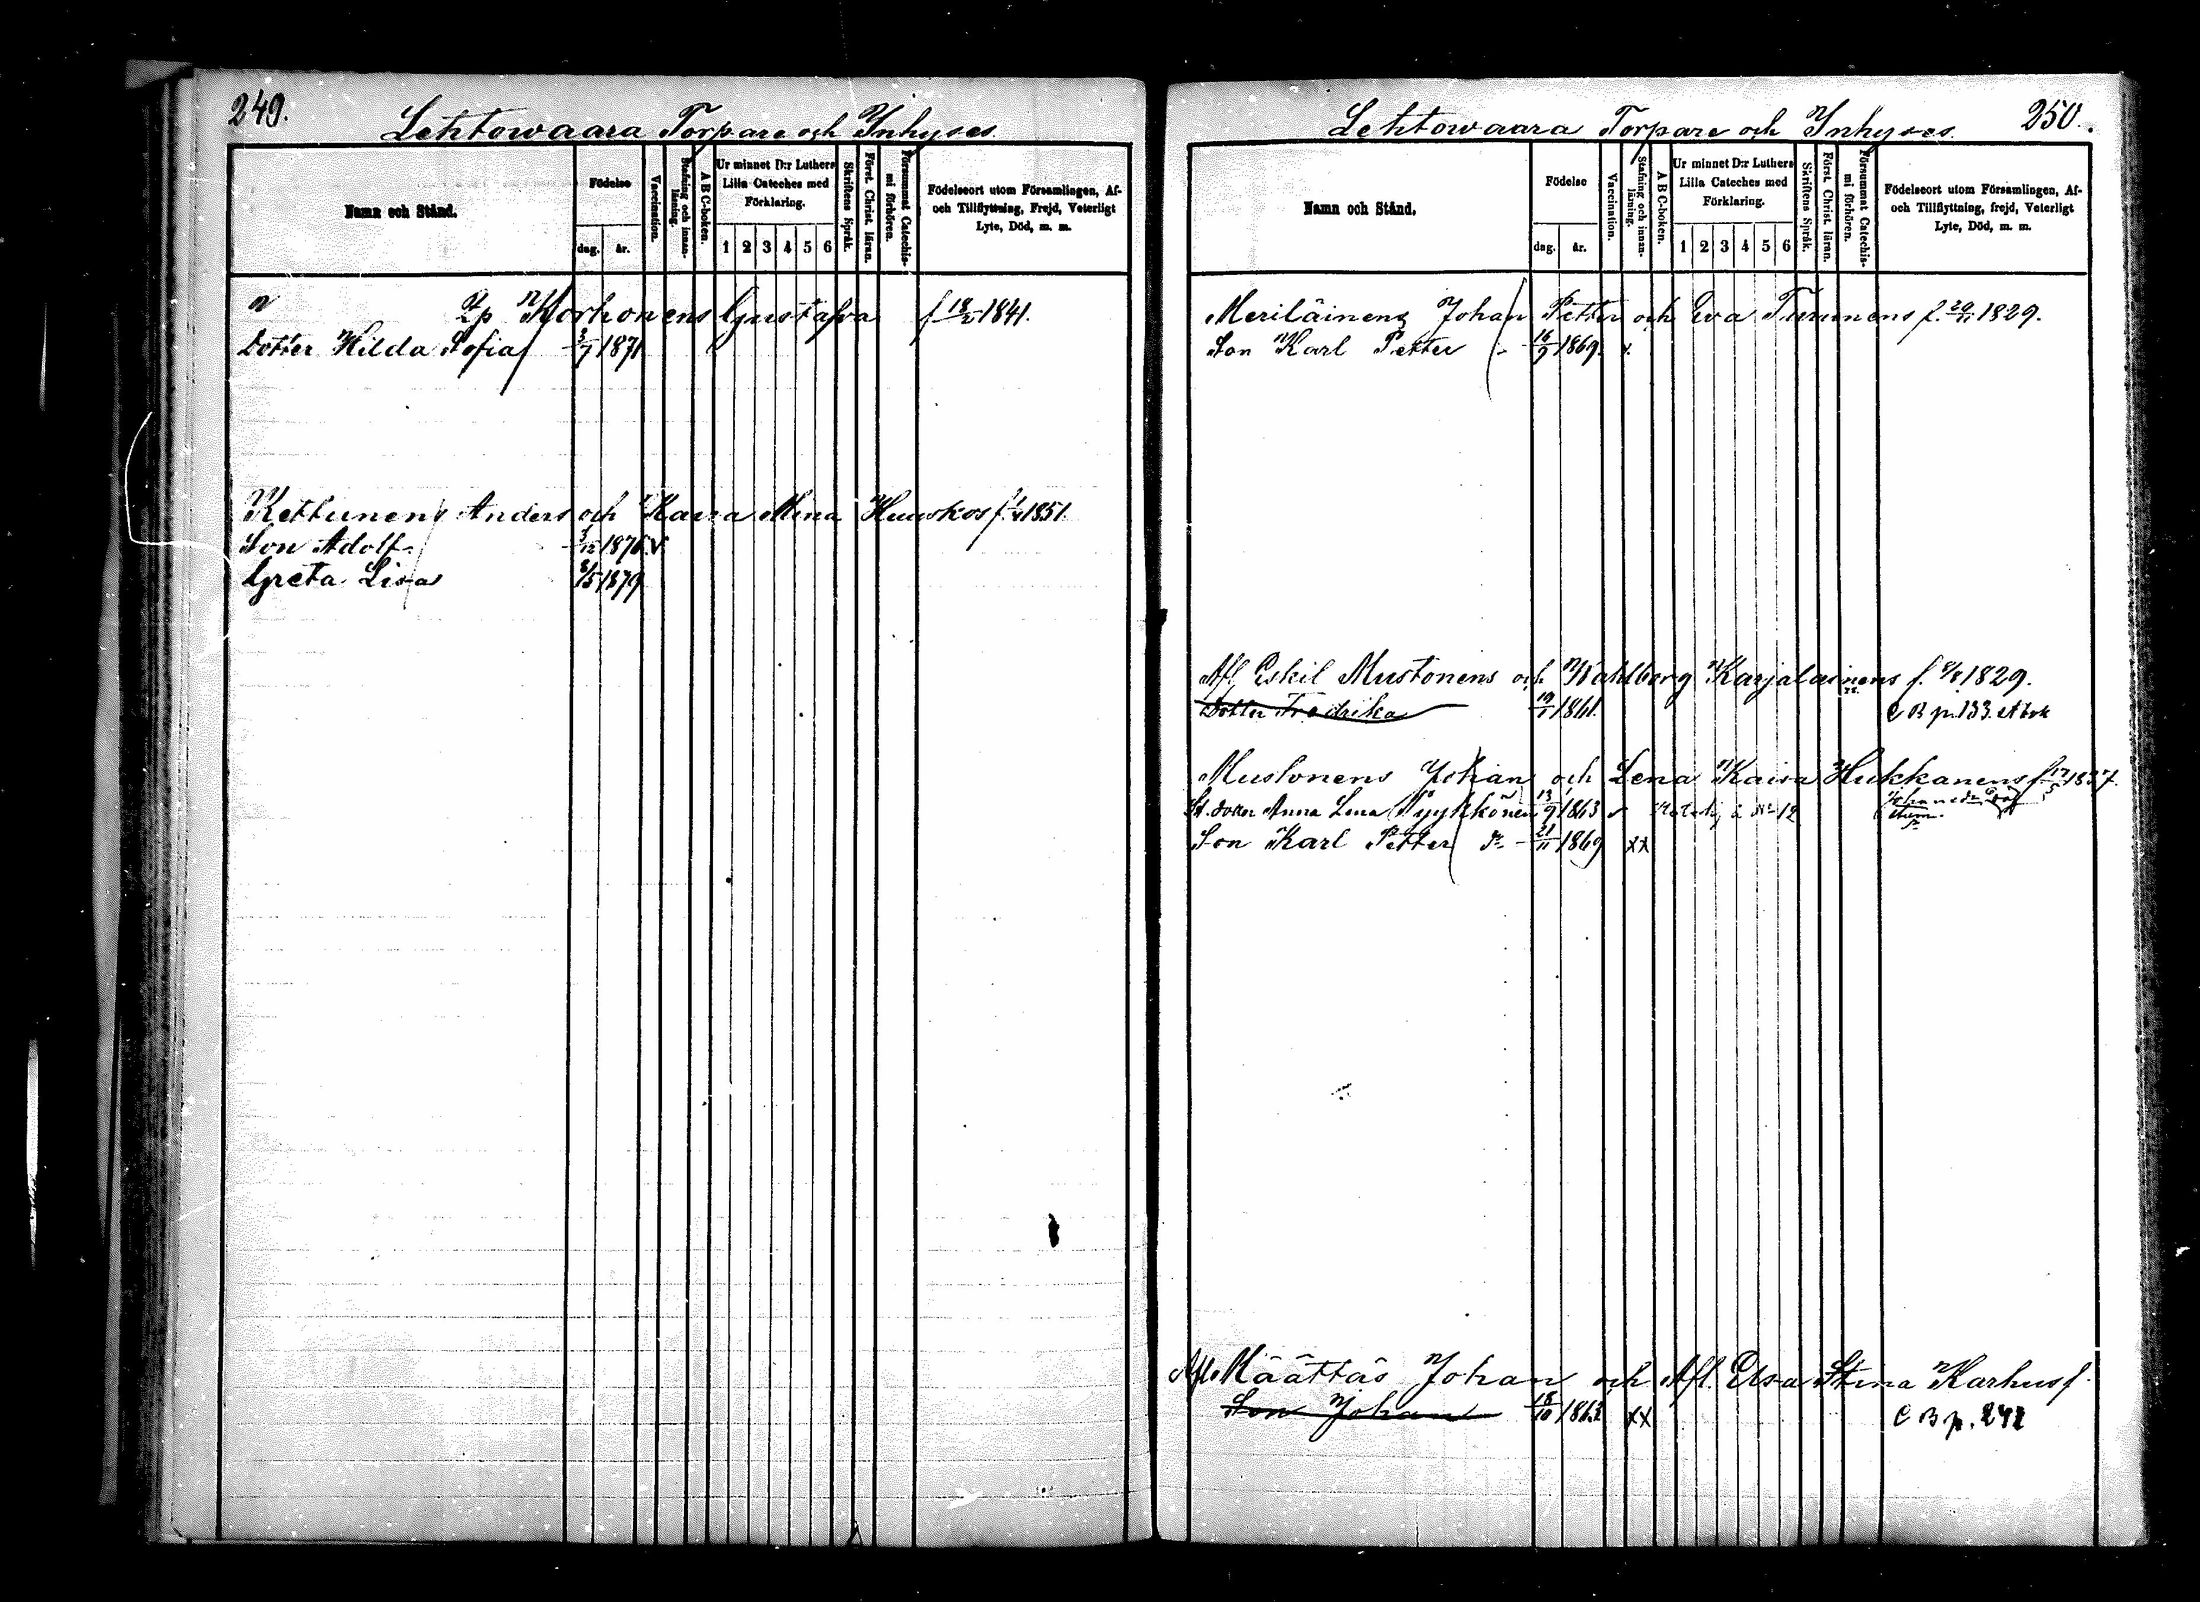 249.
Lehtowaara Torpare och Inhyses.
Namn och Stånd.
Födelse
dag. år.
Vaccination.
Stafning och innan-läsning.
A B C-boken.
Ur minnet D:r Luthers Lilla Cateches med Förklaring.
1 2 3 4 5 6
Skriftens Språk.
Först. Christ. läran.
Försummat Catechis-mi förhören.
Födelseort utom Församlingen, Af- och Tillflyttning, Frejd, Veterligt Lyte, Död, m. m.
Korhonens Gustafva f 18/5 1841.
Dotter Hilda Sofia 3/7 1871
Kettunens Anders och Kaisa Mina Huuskos f. 1851.
Son Adolf 3/12 1876 v
Greta Lisa 8/5 1879
Lehtowaara Torpare och Inhyses. 250.
Namn och Stånd.
Födelse
dag. år.
Vaccination.
Stafning och innan-läsning.
A B C-boken.
Ur minnet D:r Luthers Lilla Cateches med Förklaring.
1 2 3 4 5 6
Skriftens Språk.
Först. Christ. läran.
Försummat Catechis-mi förhören.
Födelseort utom Församlingen, Af- och Tillflyttning, frejd, Veterligt Lyte, Död, m. m.
Meriläinens Johan Petter och Eva Turunens f. 20/11 1829.
Son Karl Petter 16/9 1869. x
Afl. Eskil Mustonens och Wahlborg Karjalainens f. 1829.
Dotter Fredrika 19/1 1861. C B p. 133.
Mustonens Johan och Lena Kaisa Hukkanens f. 1837.
dotter Anna Lena Pyykkönen 13/9 1863
Son Karl Petter 21/11 1869 xx
Afl. Määttäs Johan och Afl. Elsa Stina Karhus f.
Son Johan 18/10 1863 xx C B p. 242